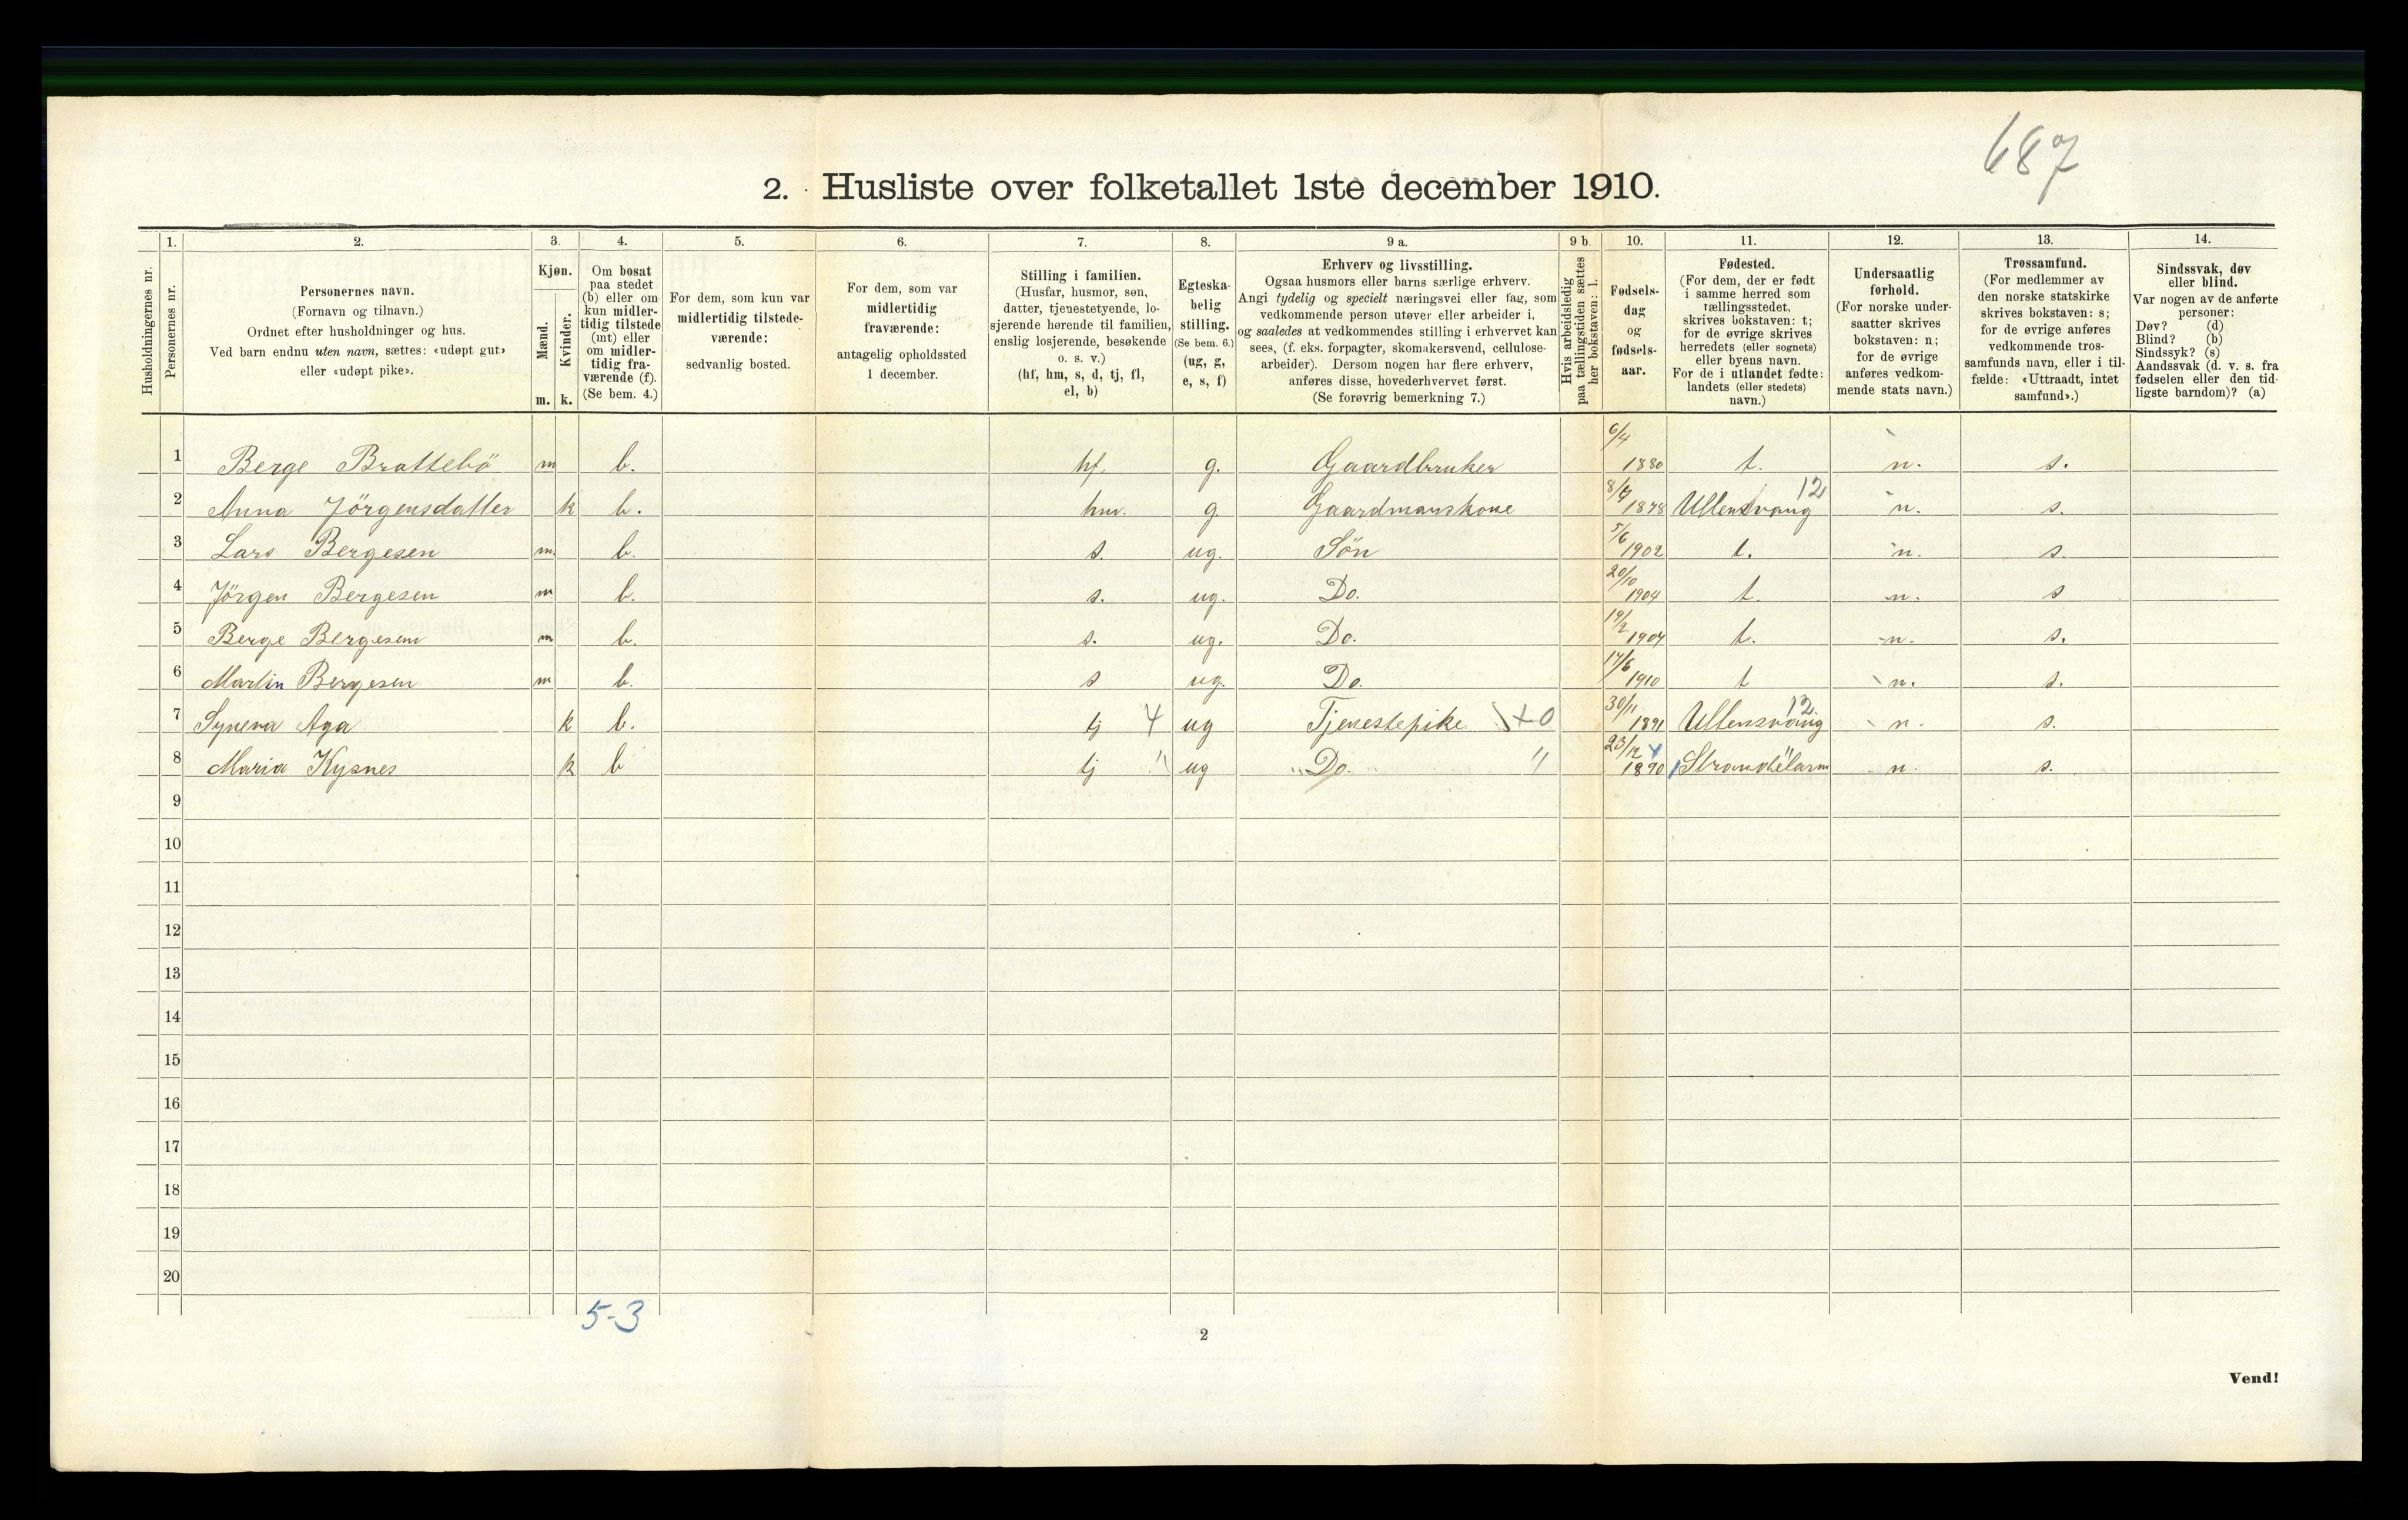 687
2. Husliste over folketallet 1ste december 1910.
Husholdningernes nr.
1.
Personernes nr.
2.
Personernes navn.
(Fornavn og tilnavn.)
Ordnet efter husholdninger og hus.
Ved barn endnu uten navn, sættes: «udøpt gut»
eller «udøpt pike».
3.
Kjøn.
Mænd.
Kvinder.
m. k.
4.
Om bosat
paa stedet
(b) eller om
kun midler-
tidig tilstede
(mt) eller
om midler-
tidig fra-
værende (f).
(Se bem. 4.)
5.
For dem, som kun var
midlertidig tilstede-
værende:
sedvanlig bosted.
6.
For dem, som var
midlertidig
fraværende:
antagelig opholdssted
1 december.
7.
Stilling i familien.
(Husfar, husmor, søn,
datter, tjenestetyende, lo-
sjerende hørende til familien,
enslig losjerende, besøkende
o. s. v.)
(hf, hm, s, d, tj, fl,
el, b)
8.
Egteska-
belig
stilling.
(Se bem. 6.)
(ug, g,
e, s, f)
9 a.
Erhverv og livsstilling.
Ogsaa husmors eller barns særlige erhverv.
Angi tydelig og specielt næringsvei eller fag, som
vedkommende person utøver eller arbeider i,
og saaledes at vedkommendes stilling i erhvervet kan
sees, (f. eks. forpagter, skomakersvend, cellulose-
arbeider). Dersom nogen har flere erhverv,
anføres disse, hovederhvervet først.
(Se forøvrig bemerkning 7.)
9 b.
Hvis arbeidsledig
paa tællingstiden sættes
her bokstaven: l.
10.
Fødsels-
dag
og
fødsels-
aar.
11.
Fødested.
(For dem, der er født
i samme herred som
tællingsstedet,
skrives bokstaven: t;
for de øvrige skrives
herredets (eller sognets)
eller byens navn.
For de i utlandet fødte:
landets (eller stedets)
navn.)
12.
Undersaatlig
forhold.
(For norske under-
saatter skrives
bokstaven: n;
for de øvrige
anføres vedkom-
mende stats navn.)
13.
Trossamfund.
(For medlemmer av
den norske statskirke
skrives bokstaven: s;
for de øvrige anføres
vedkommende tros-
samfunds navn, eller i til-
fælde: «Uttraadt, intet
samfund».)
14.
Sindssvak, døv
eller blind.
Var nogen av de anførte
personer:
Døv? (d)
Blind? (b)
Sindssyk? (s)
Aandssvak (d. v. s. fra
fødselen eller den tid-
ligste barndom)? (a)
1 Berge Brattebö m b. hf. g. Gaardbruker 6/4 1880 t. n. s.
2 Anna Jörgensdatter k b. hm. g. Gaardmanskone 8/7 1878 Ullensvang 12 n. s.
3 Lars Bergesen m. b. s. ug. Sön 5/6 1902 t. n. s.
4 Jörgen Bergesen m b. s. ug. Do. 20/10 1904 t. n. s
5 Berge Bergesen m b. s. ug. Do. 19/2 1907 t. n. s.
6 Martin Bergesen m b. s ug. Do. 17/6 1910 t n. s.
7 Syneva Aga k b. tj 4 ug Tjenestepike \+0 30/11 1891 Ullensvang 12 n. s.
8 Maria Kysnes k b tj " ug Do. " 23/12 1890 Strandebarm n. s.
9
10
11
12
13
14
15
16
17
18
19
20
5-3
2
Vend!